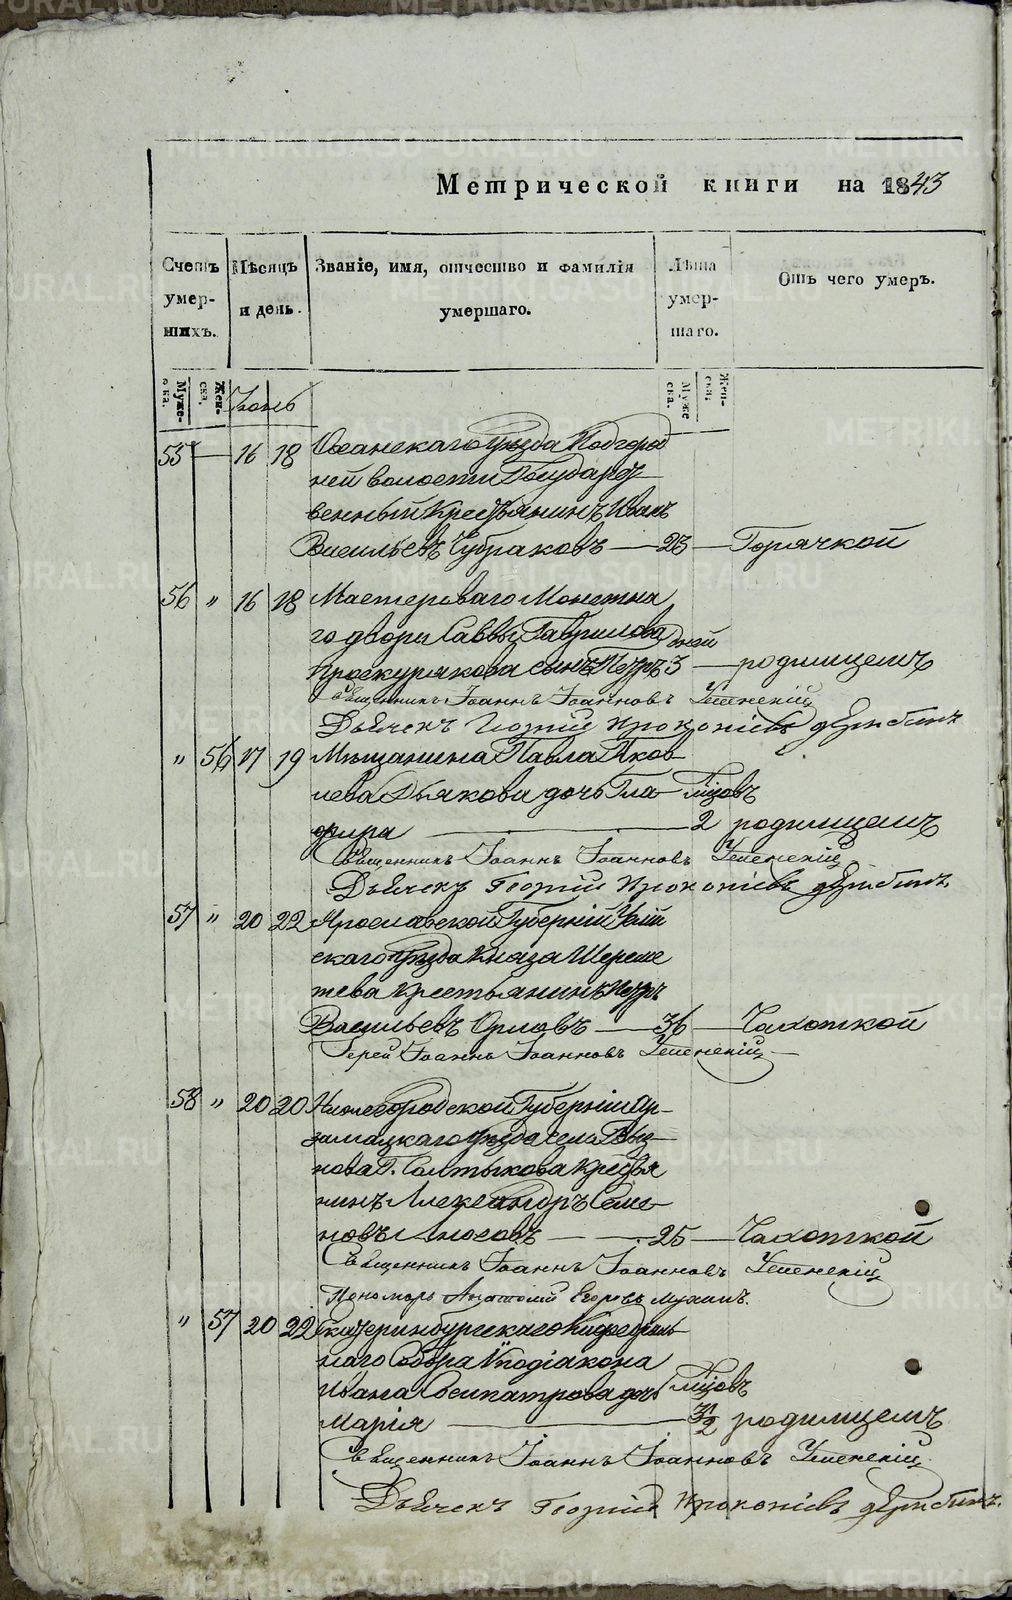 Метрической книги на 1843
Счетъ умер-шихъ.
Мѣсяцъ и день.
Званіе, имя, отчество и фамилія умершаго.
Лѣта умер-шаго.
Отъ чего умеръ.
Муже-ска.
Жен-ска.
Муже-ска.
Жен-ска.
Іюнь
55 — 16 18 Осанскаго Уѣзда Подгород
ней волости Государст
венный Крестьянинъ Иванъ
Васильевъ Чубраковъ — 23 — Горячкой
56 „ 16 18 Мастероваго Монетна
го двора Саввы Гаврилова дней
Проскурякова сынъ Петръ 3 — родимцемъ
Священникъ Іоаннъ Іоанновъ Успенскій
Дьячекъ Георгій Прокопіевъ
„ 56 17 19 Мѣщанина Павла Яков
лева Дьякова дочь Гла- мцовъ
фира — 2 родимцемъ
Священникъ Іоаннъ Іоанновъ Успенскій
Дьячекъ Георгій Прокопіевъ
57 „ 20 22 Ярославской Губерніи
скаго уѣзда Князя Шереме
тева крестьянинъ Петръ
Васильевъ Орловъ — 36 — Чахоткой
Іерей Іоаннъ Іоанновъ Успенскій
58 „ 20 20 Нижегородской Губерніи Ар-
замазкаго уѣзда села
нова Г. Салтыкова крестья
нинъ Александръ Семе-
новъ — 25 — Чахоткой
Священникъ Іоаннъ Іоанновъ Успенскій
Пономарь Анатолій Егоровъ Мухинъ.
„ 57 20 22 Екатеринбургскаго Кафедраль
наго Собора Ѵподіакона
Ивана дочь мцовъ
Марія — 3½ родимцемъ
Священникъ Іоаннъ Іоанновъ Успенскій
Дьячекъ Георгій Прокопіевъ
METRIKI.GASO-URAL.RU